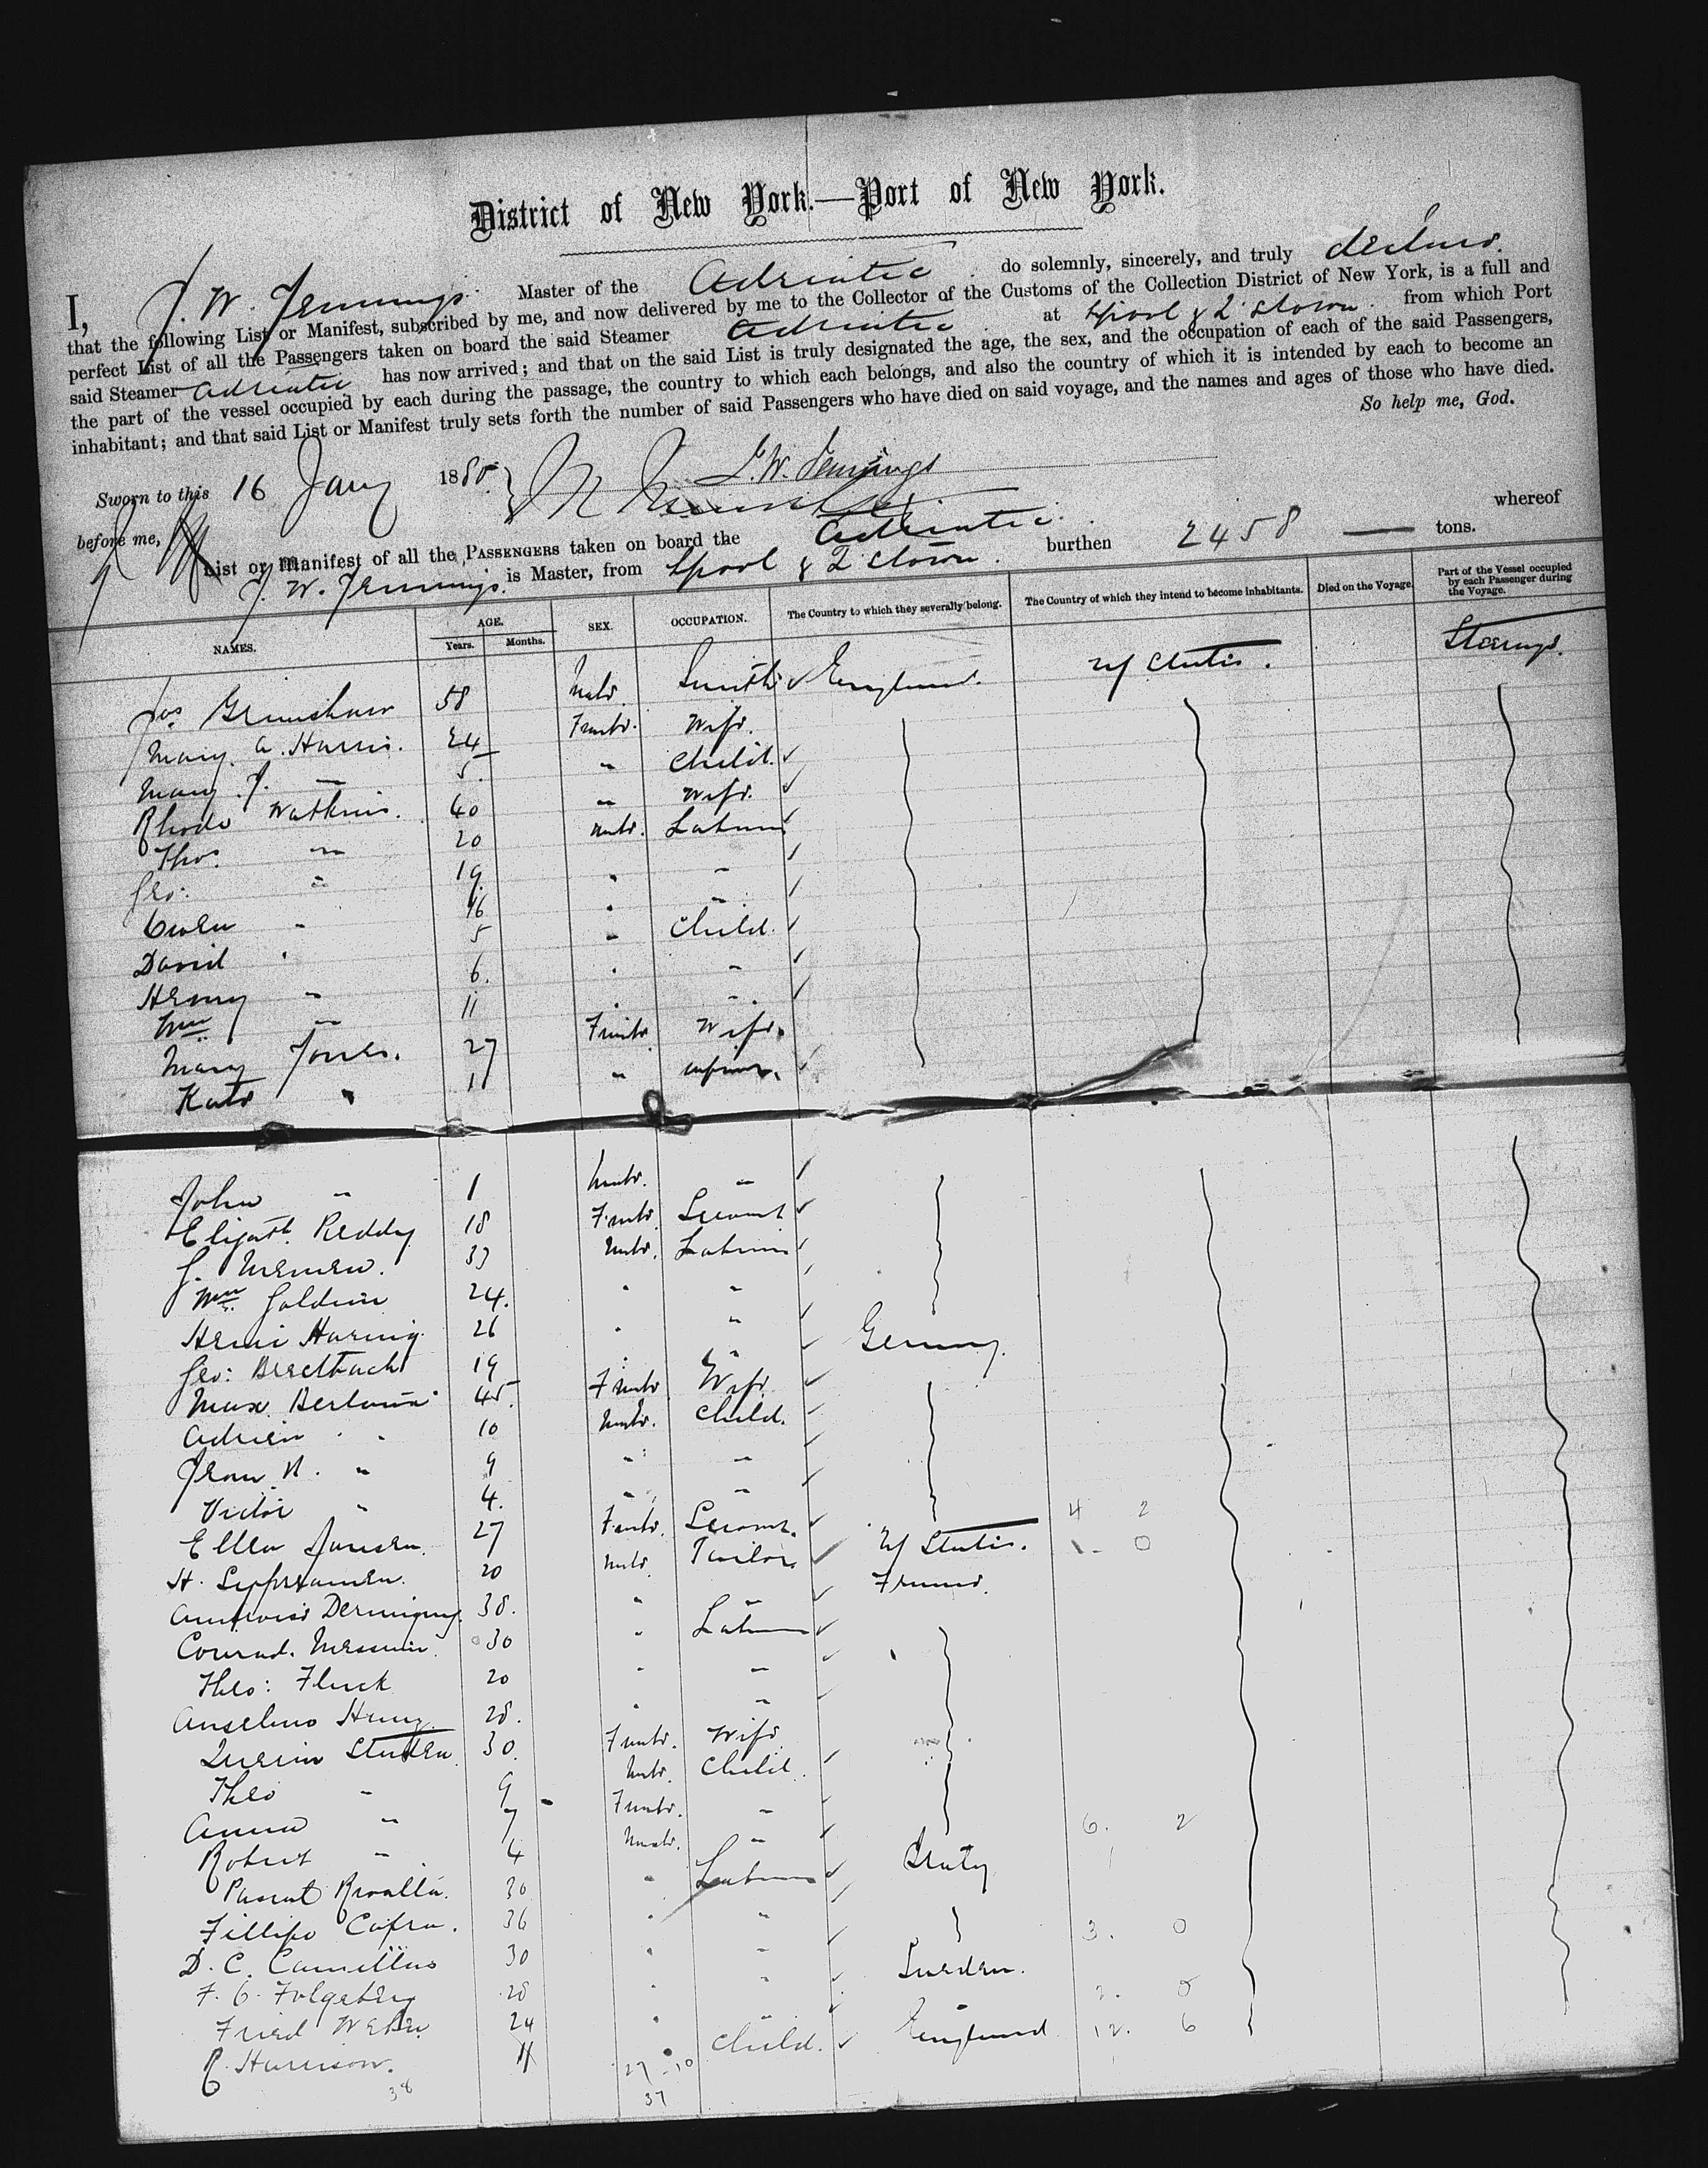 District of New York.—Port of New York.
I, J. W. Jennings. Master of the Adriatic. do solemnly, sincerely, and truly declare.
that the following List or Manifest, subscribed by me, and now delivered by me to the Collector of the Customs of the Collection District of New York, is a full and
perfect List of all the Passengers taken on board the said Steamer Adriatic. at Lpool & Q'stown. from which Port
said Steamer Adriatic has now arrived; and that on the said List is truly designated the age, the sex, and the occupation of each of the said Passengers,
the part of the vessel occupied by each during the passage, the country to which each belongs, and also the country of which it is intended by each to become an
inhabitant; and that said List or Manifest truly sets forth the number of said Passengers who have died on said voyage, and the names and ages of those who have died.
So help me, God.
Sworn to this 16 Jany 1880 J. W. Jennings
before me,
List or Manifest of all the PASSENGERS taken on board the Adriatic. burthen 2458 — tons. whereof
J. W. Jennings. is Master, from Lpool & Q'stown.
NAMES. AGE. Years. Months. SEX. OCCUPATION. The Country to which they severally belong. The Country of which they intend to become inhabitants. Died on the Voyage. Part of the Vessel occupied by each Passenger during the Voyage.
Jos Grimshaw 58 Male Smith England. U States. Steerage.
Mary. A. Harris. 24 Female. Wife.
Mary. J. — 5. " Child.
Rhoda Watkins. 40 " Wife.
Thos. " 20 Male. Labourer
Geo: " 19. " "
Owen " 16 " "
David " 5 " Child.
Henry " 6. " "
Wm " 11 " "
Mary Jones. 27 Female Wife.
Kate " 11 " infant.
John " 1 Male. "
Elizath. Reddy 18 Female Servant
J. 33 Male. Labourer
Wm. 24. " "
Henri 26 " "
Geo: 19 " " Germany.
Max. 45. Female Wife
Adrien " 10 Male. Child.
Jean N. " 9 " "
Victor " 4. " "
Ellen Jansen. 27 Female. Servant. 4 2
H. 20 Male. Tailor U States. 1 - 0
38. " " France.
Conrad. 30 " Labourer
Theo: Fluck 20 " "
Anselmo 28. " "
30. Female. Wife
Theo " 9 Male. Child.
Anna " 7 Female. "
Robert " 4 Male. " 6. 2
30 " Labourer Italy
Fillipo Cafra. 36 " "
D. C. Camillus 30 " " 3. 0
28 " " Sweden.
Fried Weber 24 " " 2. 0
R. Harrison. 11 " Child. England 12. 6
38 27 - 10
37